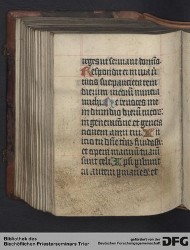 reges ut seruiant domino
Respondit ei in uia uir
tutis sue paucitatem
dierum meorum nuncia
michi Ne reuoces me
in dimidio dierum meor
in generatione et genera
anni tui
tu dñe fundasti
et opera manuum tuarum
sunt celi Ipsi peribunt
tu autem permanes et
Bibliothek des
Bischöflichen Priesterseminars Trier
gefördert von der
Deutschen Forschungsgemeinschaft
DFG